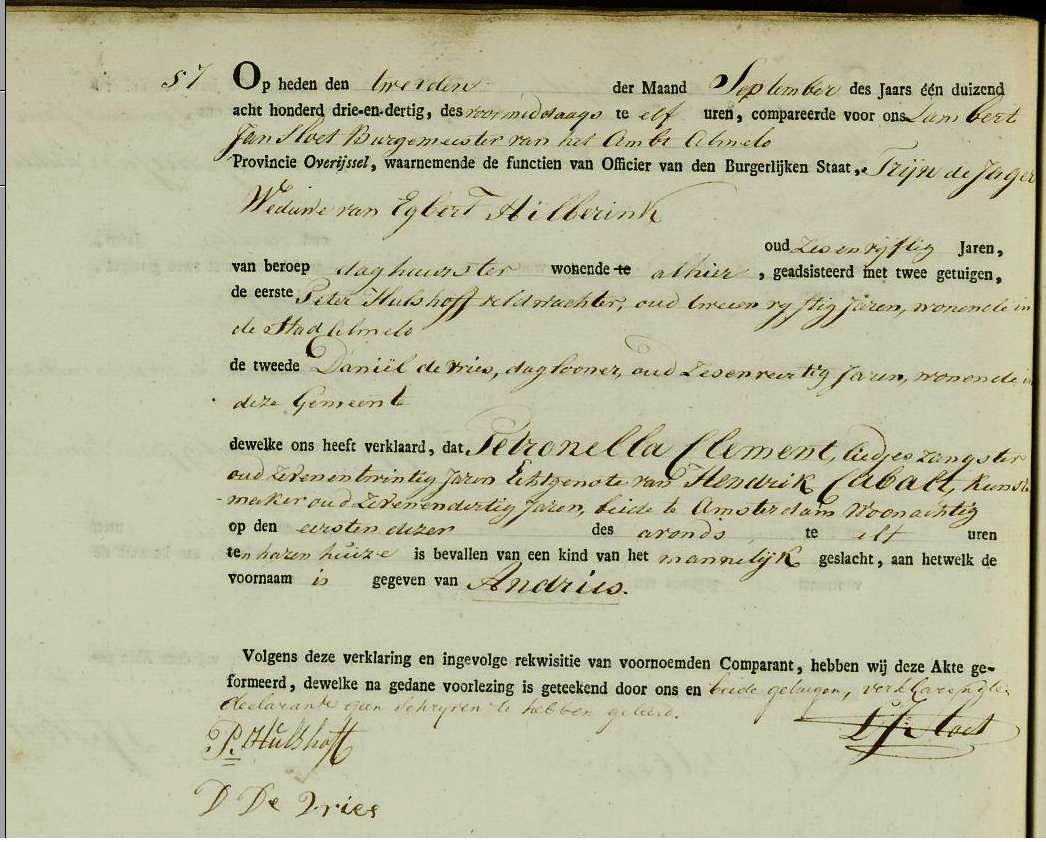 57 Op heden den tweeden der Maand September des Jaars één duizend
acht honderd drie-en-dertig, des voormiddaags te elf uren, compareerde voor ons Lambert
Jan Sloet Burgemeester van het Ambt Almelo
Provincie Overijssel, waarnemende de functien van Officier van den Burgerlijken Staat, Trijn de Jager
Weduwe van Egbert Hilberink
oud Zesenvyftig Jaren,
van beroep daghuurster wonende te alhier, geadsisteerd met twee getuigen,
de eerste Peter Hulshoff veldwachter, oud tweeenvyftig Jaren, wonende in
de Stad Almelo
de tweede Daniël de Vries, daglooner, oud Zesenveertig Jaren, wonende in
deze Gemeente
dewelke ons heeft verklaard, dat Petronella Clement, liedjes zangster
oud Zevenentwintig Jaren Echtgenote van Hendrik Cabalt, Kunste
-maker oud Zevenendertig Jaren, beide te Amsterdam Woonachtig
op den eersten dezer des avonds te elf uren
ten haren huize is bevallen van een kind van het mannelijk geslacht, aan hetwelk de
voornaam is gegeven van Andries.
Volgens deze verklaring en ingevolge rekwisitie van voornoemden Comparant, hebben wij deze Akte ge-
formeerd, dewelke na gedane voorlezing is geteekend door ons en beide getuigen, verklarende
declarante geen schryven te hebben geleerd.
P. Hulshoff LJ Sloet
D De Vries